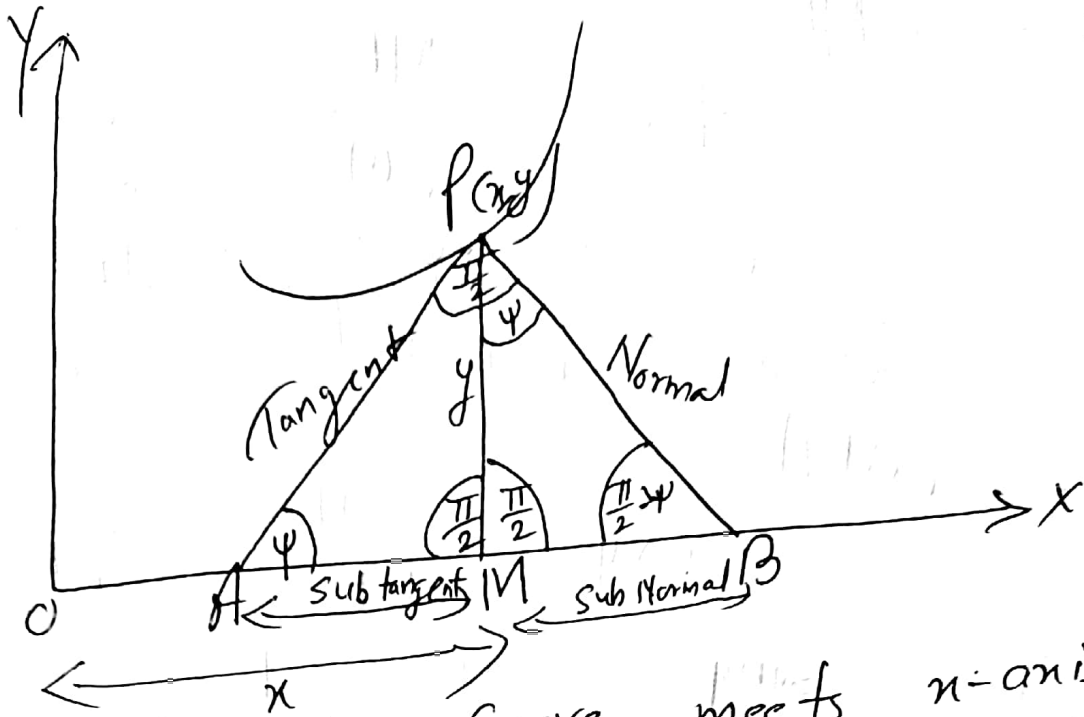 Y
P(x,y)
π/2
ψ
Tangent
y
Normal
ψ
π/2
π/2
π/2-ψ
X
O
A
Sub tangent
M
Sub Normal
B
x
Curve meets x-axis